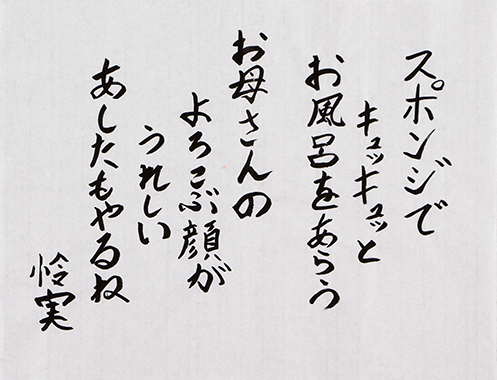 スポンジで
キュッキュッと
お風呂をあらう
お母さんの
よろこぶ顔が
うれしい
あしたもやるね
怜実